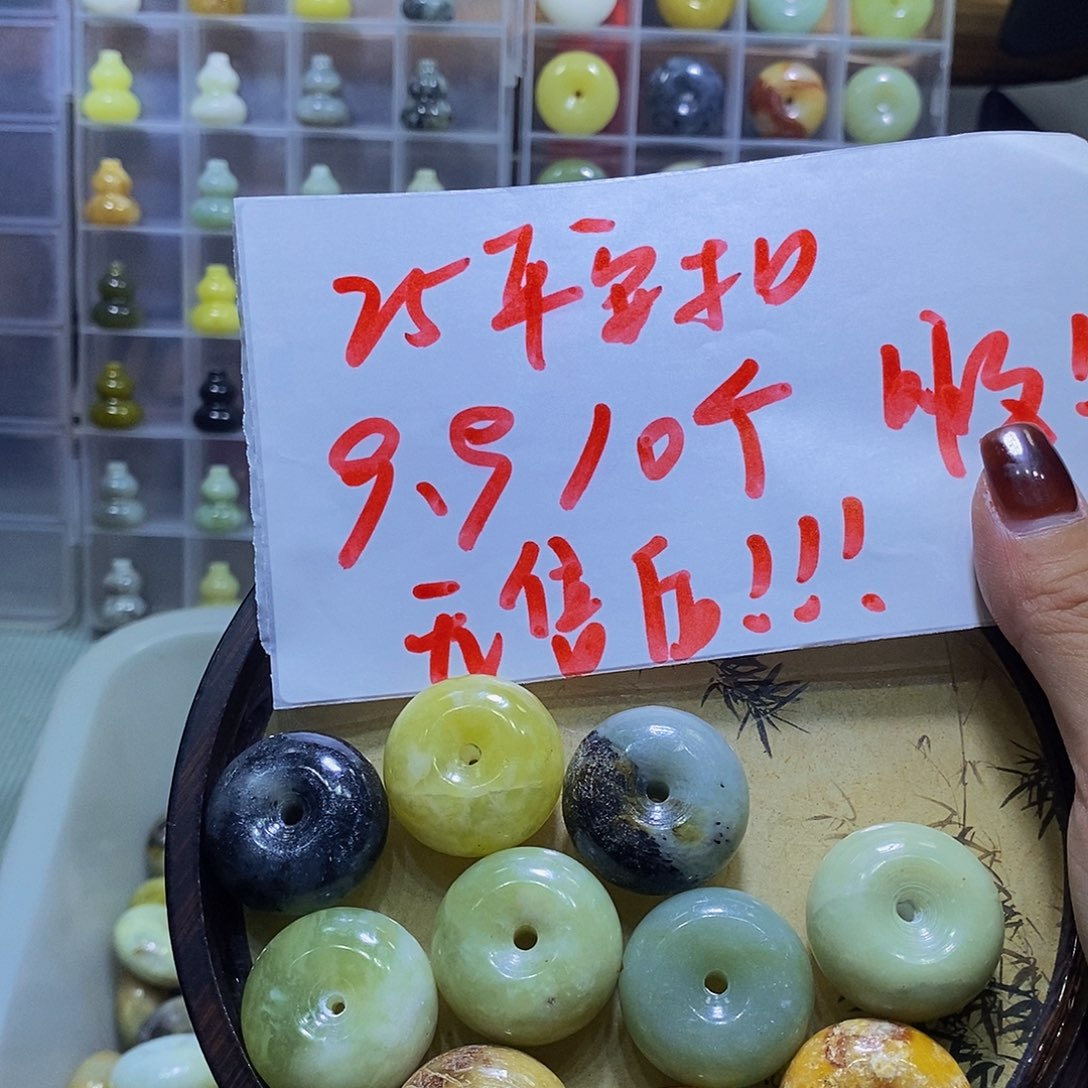 25平安扣
9.9/10个 收!
无售后!!!